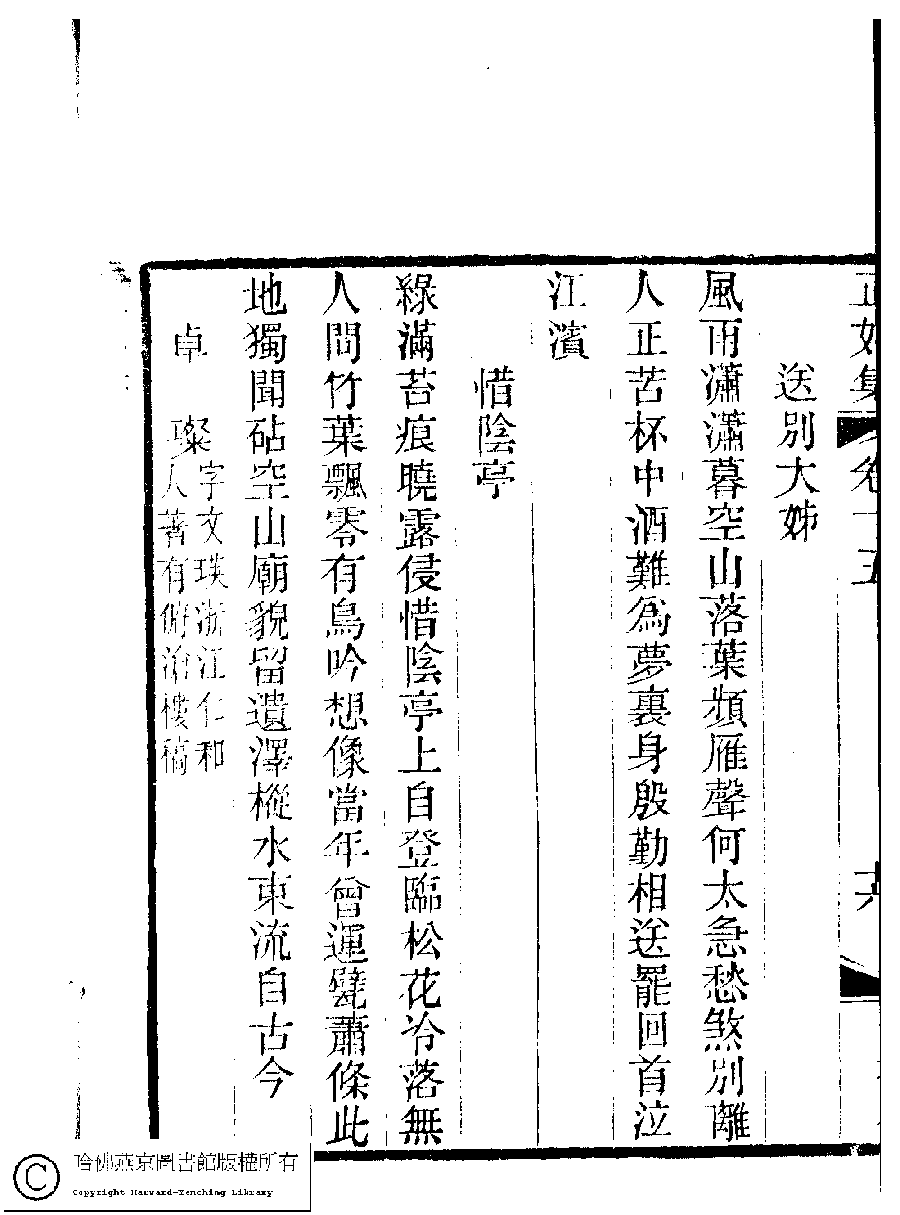 正始集 卷十五 六
送別大姊
風雨瀟瀟暮空山落葉頻雁聲何太急愁煞別離
人正苦杯中酒難為夢裏身殷勤相送罷回首泣
江濱
惜陰亭
綠滿苔痕曉露侵惜陰亭上自登臨松花冷落無
人問竹葉飄零有鳥吟想像當年曾運甓蕭條此
地獨聞砧空山廟貌留遺澤樅水東流自古今
卓 璨
字文瑛浙江仁和
人著有俯滄樓稿
哈佛燕京圖書館版權所有
Copyright Harvard-Yenching Library